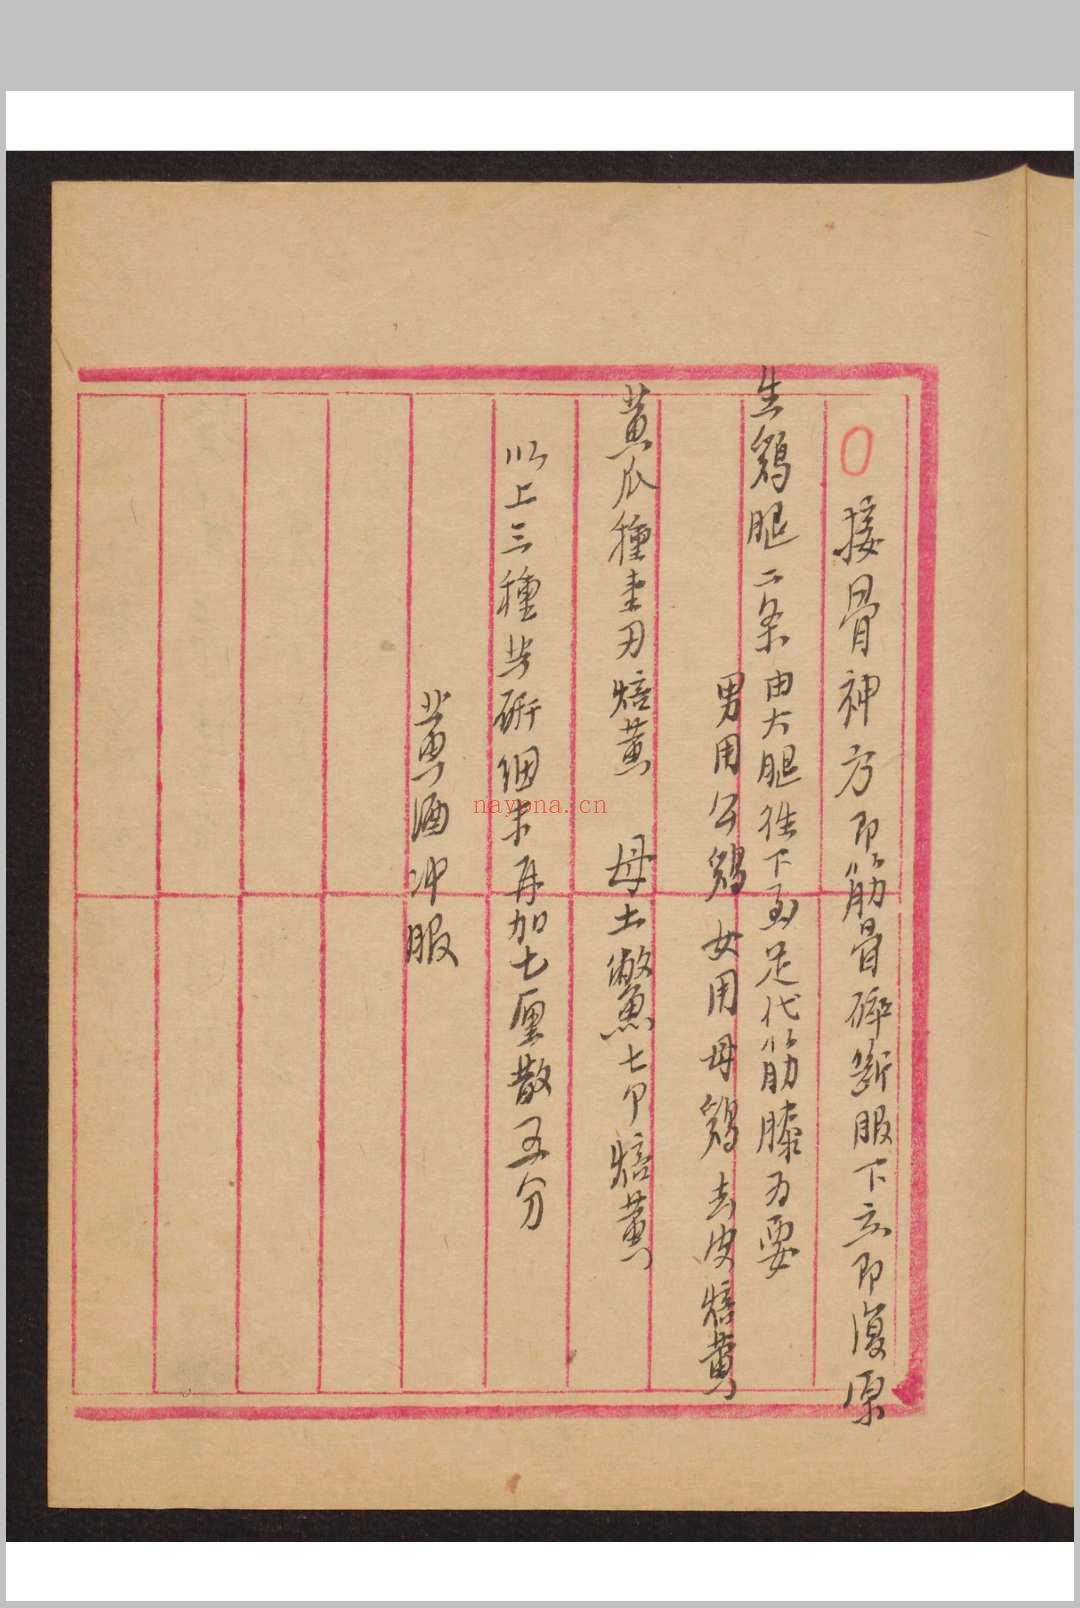 接骨神方即筋骨碎断服下立即復原
生鷄腿二条由大腿往下至足代筋膝为要
男用公鷄女用母鷄去皮焙黄
黄瓜種 焙黄 母土鱉七个焙黄
以上三種共研細末再加七厘散五分
黄酒冲服
nayona.cn